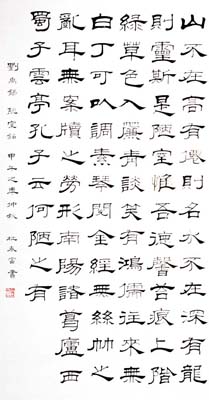 山不在高有僊則名水不在深有龍
則靈斯是陋室惟吾德馨苔痕上階
綠草色入簾青談笑有鴻儒往來無
白丁可以調素琴閱金經無絲竹之
亂耳無案牘之勞形南陽諸葛廬西
蜀子雲亭孔子云何陋之有
劉禹錫 陋室銘 甲午之 仲秋 書